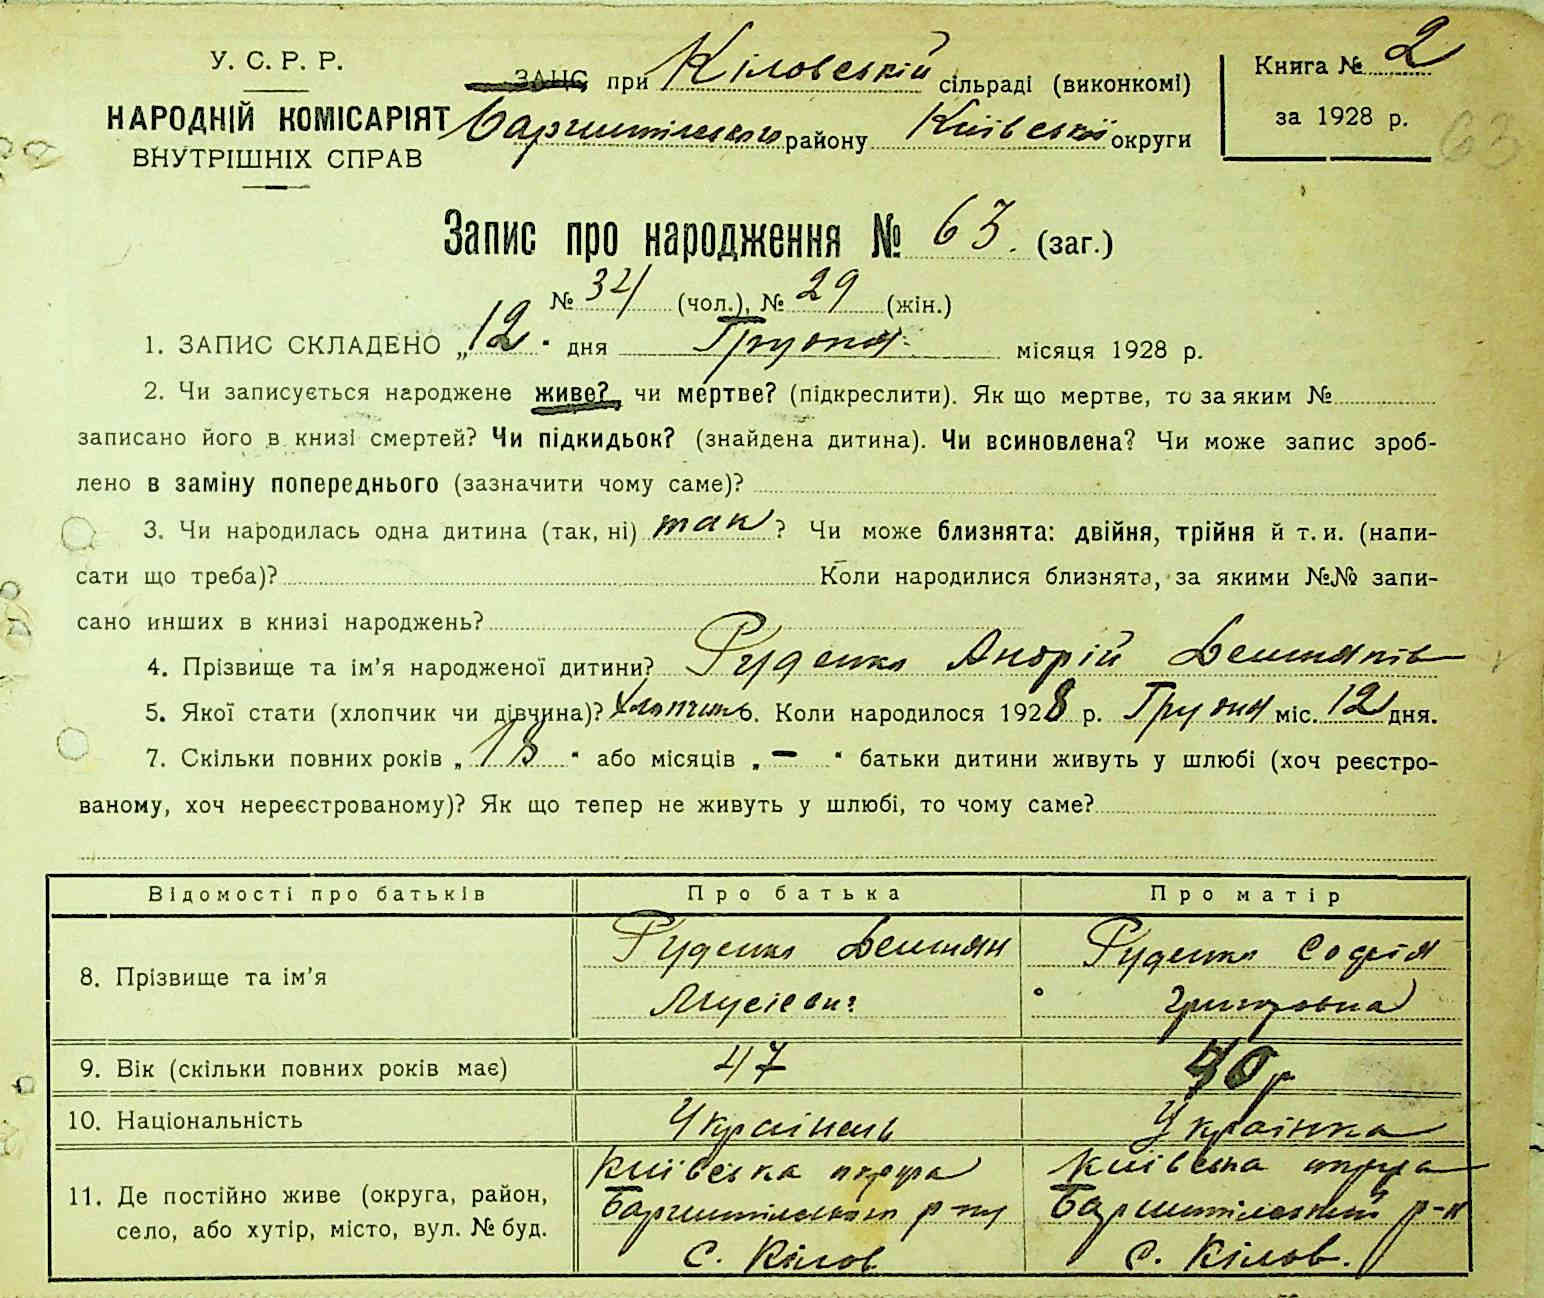 У. С. Р. Р.
НАРОДНІЙ КОМІСАРІЯТ
ВНУТРІШНІХ СПРАВ
ЗАПС при Кіловській сільраді (виконкомі)
Баришпільського району Київської округи
Книга № 2
за 1928 р.
63
Запис про народження № 63. (заг.)
№ 34 (чол.), № 29 (жін.)
1. ЗАПИС СКЛАДЕНО „12" дня Грудня місяця 1928 р.
2. Чи записується народжене живе? чи мертве? (підкреслити). Як що мертве, то за яким №
записано його в книзі смертей? Чи підкидьок? (знайдена дитина). Чи всиновлена? Чи може запис зроб-
лено в заміну попереднього (зазначити чому саме)?
3. Чи народилась одна дитина (так, ні) так? Чи може близнята: двійня, трійня й т. и. (напи-
сати що треба)? Коли народилися близнята, за якими №№ запи-
сано инших в книзі народжень?
4. Прізвище та ім'я народженої дитини? Руденко Андрій Демянів
5. Якої стати (хлопчик чи дівчина)? Хлопчик 6. Коли народилося 1928 р. Грудня міс. 12 дня.
7. Скільки повних років „18" або місяців „–" батьки дитини живуть у шлюбі (хоч реєстро-
ваному, хоч нереєстрованому)? Як що тепер не живуть у шлюбі, то чому саме?
Відомості про батьків Про батька Про матір
8. Прізвище та ім'я Руденко Демян Мусієвич Руденко Софія Григоровна
9. Вік (скільки повних років має) 47 40 р
10. Національність Українець Українка
11. Де постійно живе (округа, район,
село, або хутір, місто, вул. № буд.
Київська округа
Баришпільського р-ну
с. Кілов
Київська округа
Баришпільський р-н
с. Кілов.